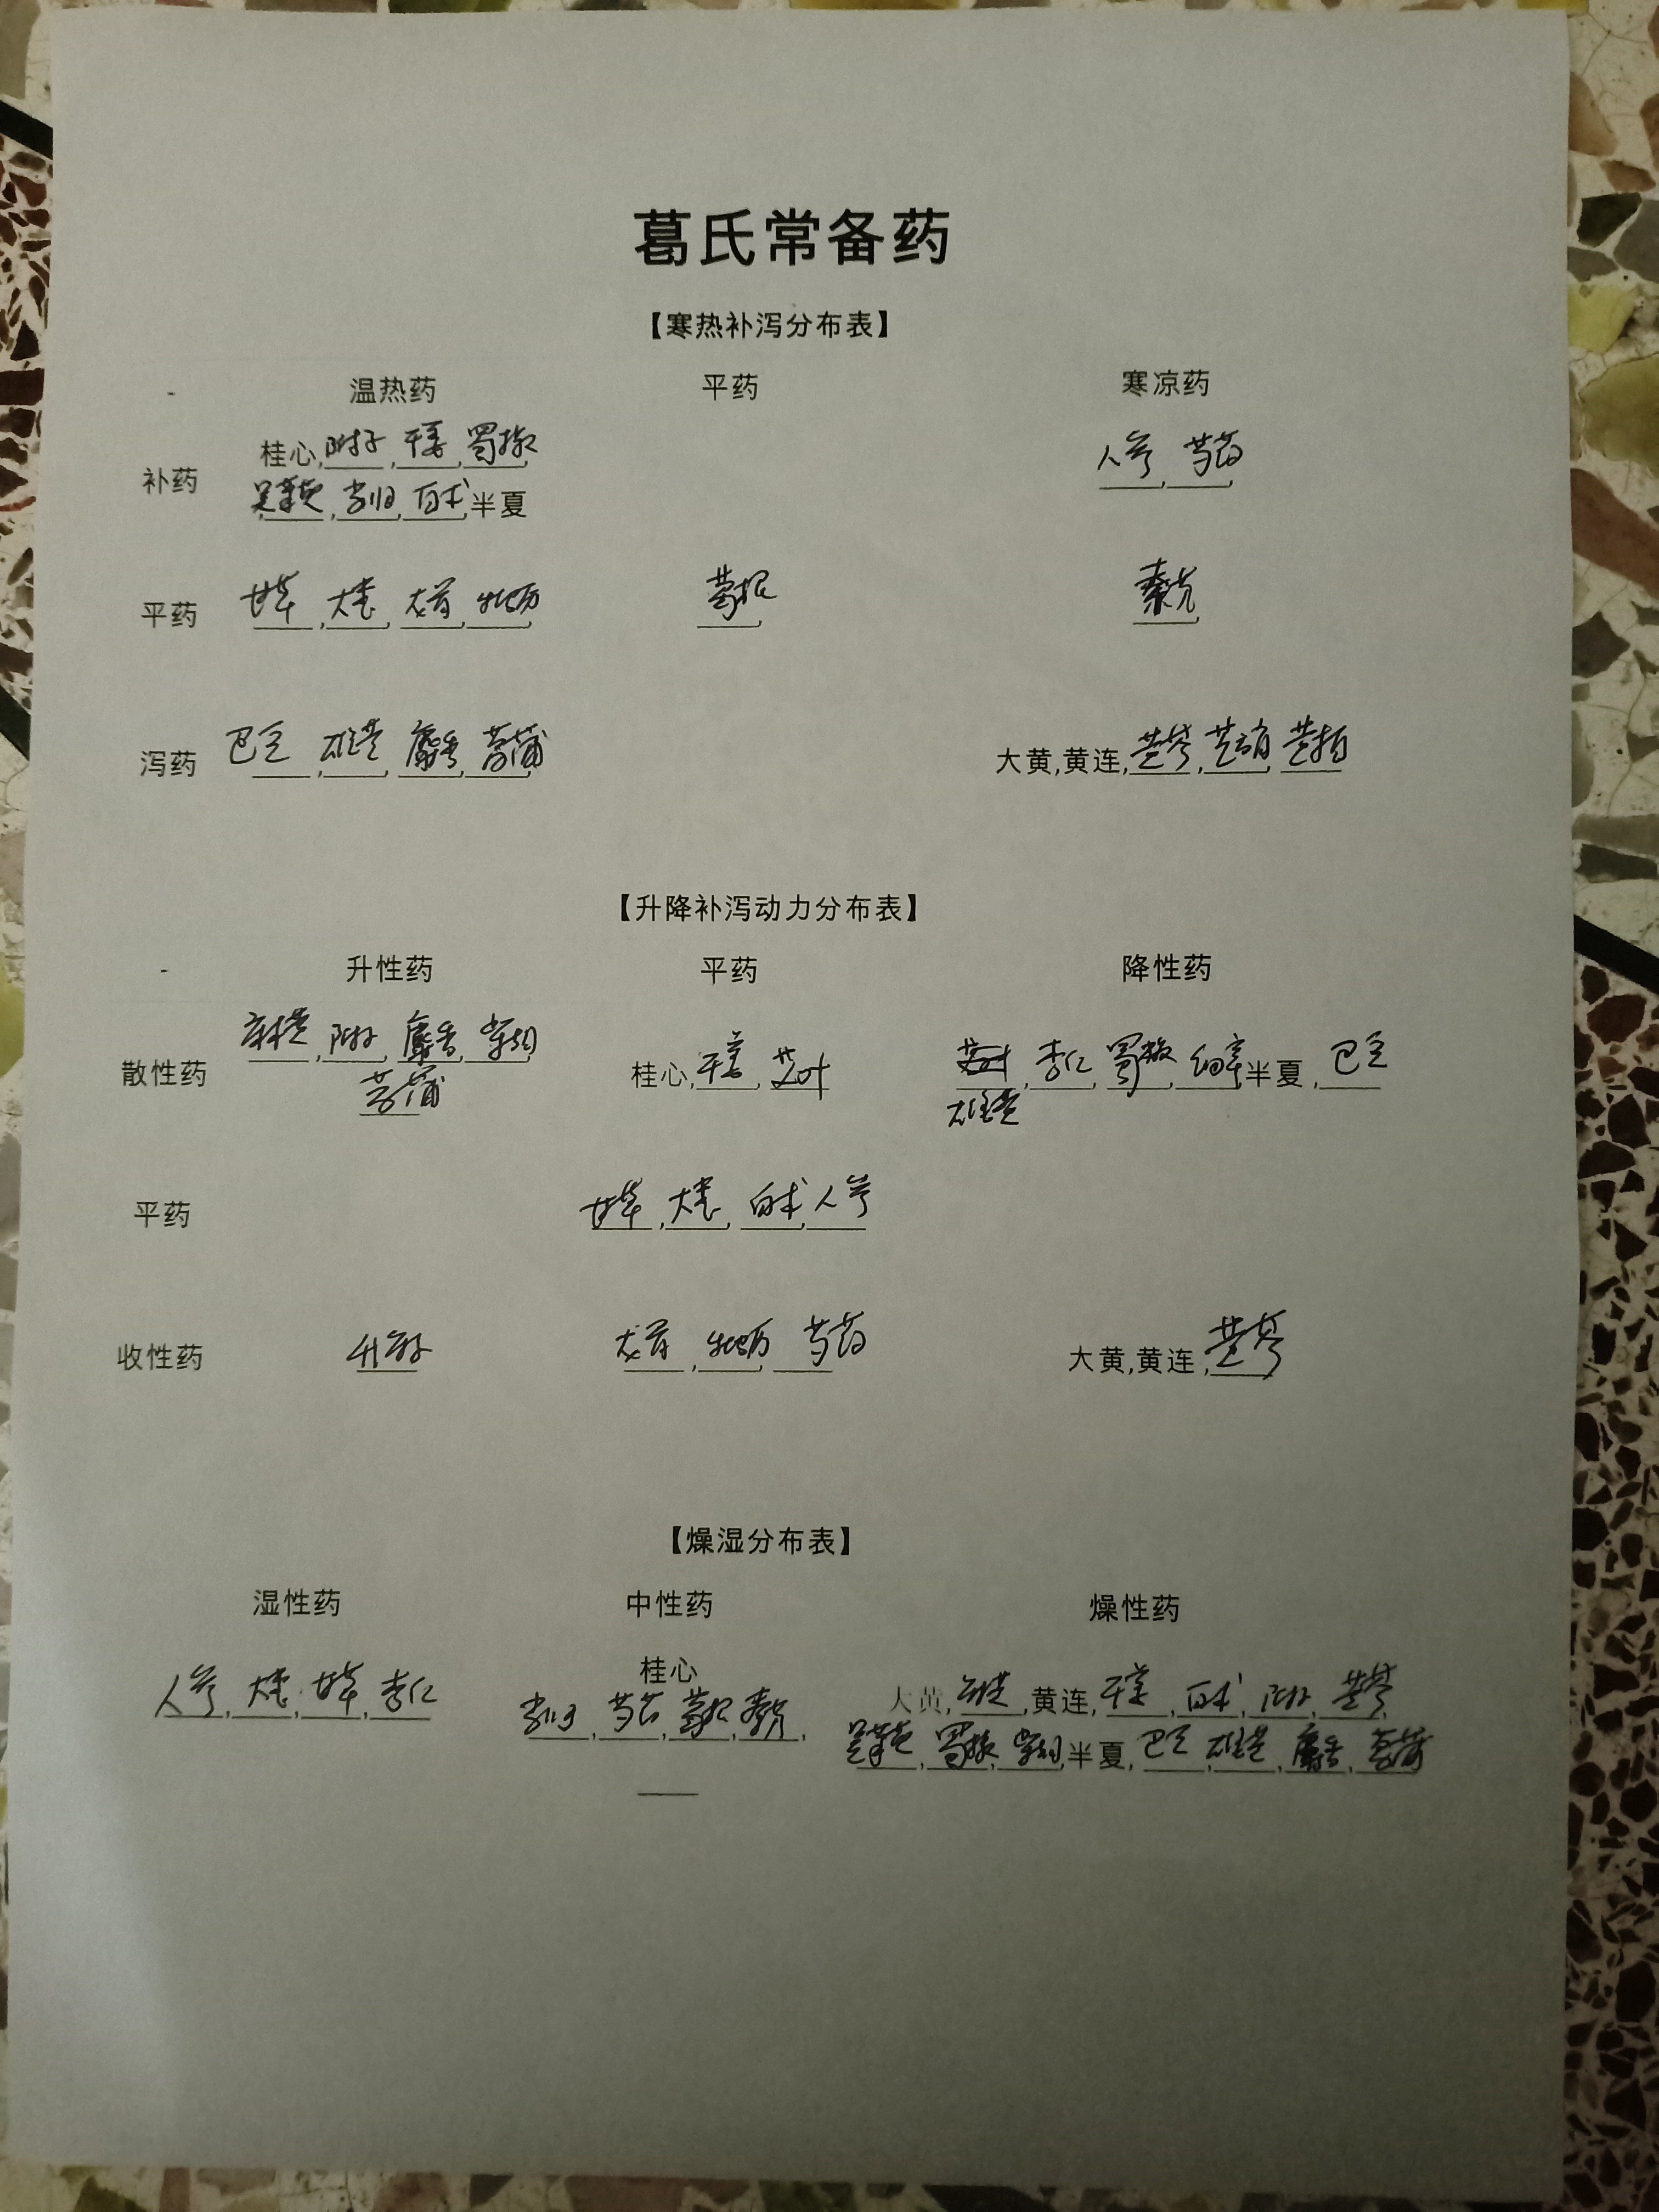 葛氏常备药
【寒热补泻分布表】
- 温热药 平药 寒凉药
桂心,附子,干姜,蜀椒 人参,芍药
补药
吴茱萸,当归,白术,半夏
平药 甘草,大枣,龙骨,牡蛎 葛根 秦艽
泻药 巴豆,雄黄,麝香,菖蒲 大黄,黄连,黄芩,芒硝,黄柏
【升降补泻动力分布表】
- 升性药 平药 降性药
散性药 麻黄,附子,麝香,柴胡 桂心,干姜,艾叶 杏仁,蜀椒,细辛,半夏,巴豆
菖蒲 雄黄
平药 甘草,大枣,白术,人参
收性药 升麻 龙骨,牡蛎,芍药 大黄,黄连,黄芩
【燥湿分布表】
湿性药 中性药 燥性药
桂心
人参,大枣,甘草,杏仁 当归,芍药,葛根,秦艽, 大黄,麻黄,黄连,干姜,白术,附子,黄芩,
吴茱萸,蜀椒,柴胡,半夏,巴豆,雄黄,麝香,菖蒲